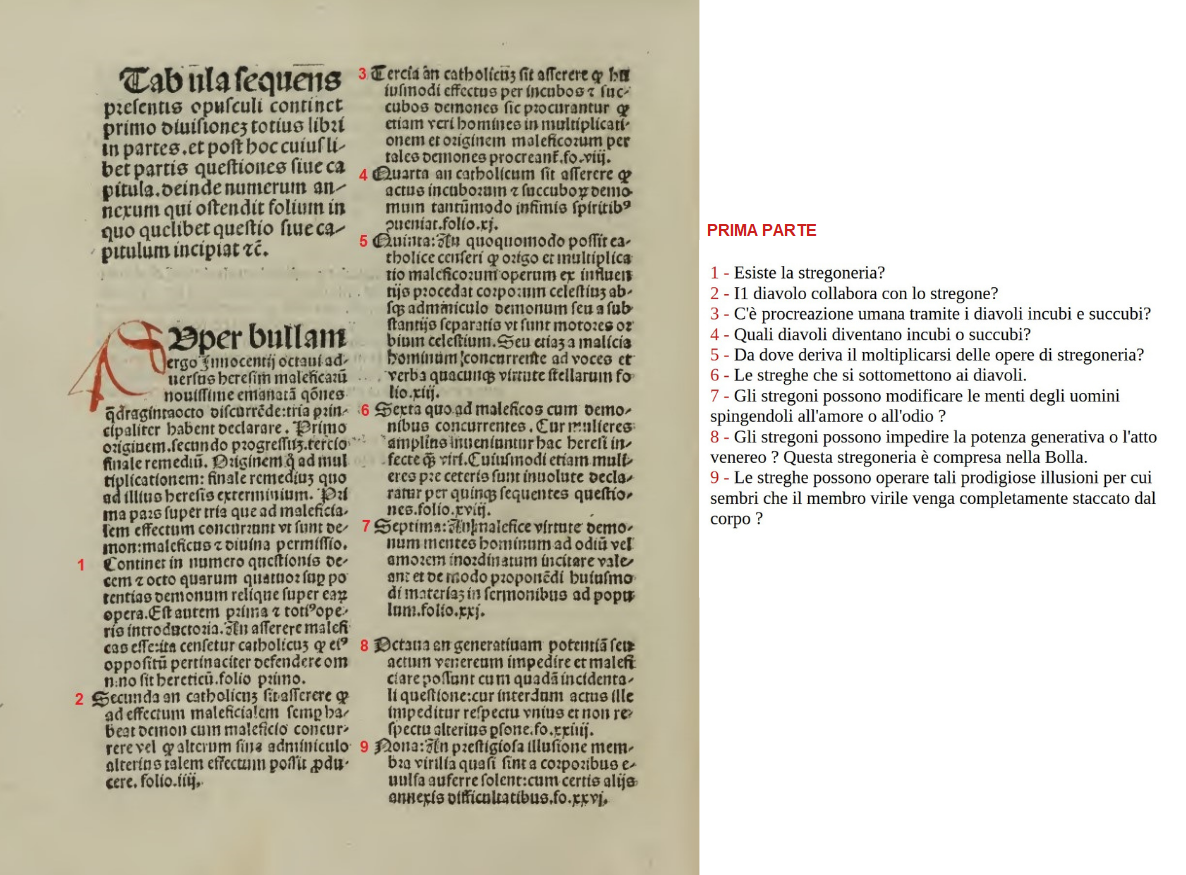 Tabula sequens
presentis opusculi continet
primo diuisionez totius libri
in partes.et post hoc cuiusli-
bet partis questiones siue ca
pitula.deinde numerum an-
nexum qui ostendit folium in
quo quelibet questio siue ca-
pitulum incipiat ⁊c̄.
Super bullam
ergo Innocentij octaui ad-
uersus heresim maleficarū
nouissime emanatā q̄ones
q̄dragintaocto discurrēde:tria prin-
cipaliter habent declarare. Primo
originem.secundo progressuz.tercio
finale remediū. Originem q̄ ad mul
tiplicationem: finale remedium quo
ad illius heresis exterminium. Pri
ma pars super tria que ad maleficia-
lem effectum concurrunt vt sunt de-
mon:maleficus ⁊ diuina permissio.
1 Continet in numero questionis de-
cem ⁊ octo quarum quatuor sup po
tentias demonum relique super eaꝝ
opera.Est autem prima ⁊ totiꝰ ope-
ris introductoria.An asserere malefi
cas esse:ita censetur catholicuz ꝙ eiꝰ
oppositū pertinaciter defendere om
nino sit hereticū.folio primo.
2 Secunda an catholicuz sit asserere ꝙ
ad effectum maleficialem semp ha-
beat demon cum maleficio concur-
rere vel ꝙ alterum sine adminiculo
alterius talem effectum possit ꝓdu-
cere. folio.iiij.
3 Tercia an catholicuz sit asserere ꝙ hu
iusmodi effectus per incubos ⁊ suc-
cubos demones sic procurantur ꝙ
etiam veri homines in multiplicati-
onem et originem maleficorum per
tales demones procreant̄.fo.viij.
4 Quarta an catholicum sit asserere ꝙ
actus incuborum ⁊ succuboꝝ demo-
mum tantūmodo infimis spiritibꝰ
ꝯueniat.folio.xj.
5 Quinta:An quoquomodo possit ca-
tholice censeri ꝙ origo et multiplica
tio maleficorum operum ex influen
tijs procedat corporum celestiuz ab-
sqꝫ adminiculo demonum seu a sub
stantijs separatis vt sunt motores or
bium celestium.Seu etiaz a malicia
hominum concurrente ad voces et
verba quacunqꝫ virtute stellarum fo
lio.xiij.
6 Sexta quo ad maleficos cum demo-
nibus concurrentes. Cur mulieres
amplius inueniuntur hac heresi in-
fecte q̄ꝫ viri.Cuiusmodi etiam muli-
eres pre ceteris sunt inuolute decla-
ratur per quinqꝫ sequentes questio-
nes.folio.xviij.
7 Septima:An malefice virtute demo-
num mentes hominum ad odiū vel
amorem inordinatum incitare vale-
ant et de modo proponēdi huiusmo
di materiaz in sermonibus ad popu
lum.folio.xxj.
8 Octaua an generatiuam potentiā seu
actum venereum impedire et malefi
ciare possunt cum quadā incidenta-
li questione:cur interdum actus ille
impeditur respectu vnius et non re-
spectu alterius psone.fo.xxiiij.
9 Nona:An prestigiosa illusione mem-
bra virilia quasi sint a corporibus e-
uulsa auferre solent:cum certis alijs
annexis difficultatibus.fo.xxvj.
PRIMA PARTE
1 - Esiste la stregoneria?
2 - I1 diavolo collabora con lo stregone?
3 - C'è procreazione umana tramite i diavoli incubi e succubi?
4 - Quali diavoli diventano incubi o succubi?
5 - Da dove deriva il moltiplicarsi delle opere di stregoneria?
6 - Le streghe che si sottomettono ai diavoli.
7 - Gli stregoni possono modificare le menti degli uomini
spingendoli all'amore o all'odio ?
8 - Gli stregoni possono impedire la potenza generativa o l'atto
venereo ? Questa stregoneria è compresa nella Bolla.
9 - Le streghe possono operare tali prodigiose illusioni per cui
sembri che il membro virile venga completamente staccato dal
corpo ?